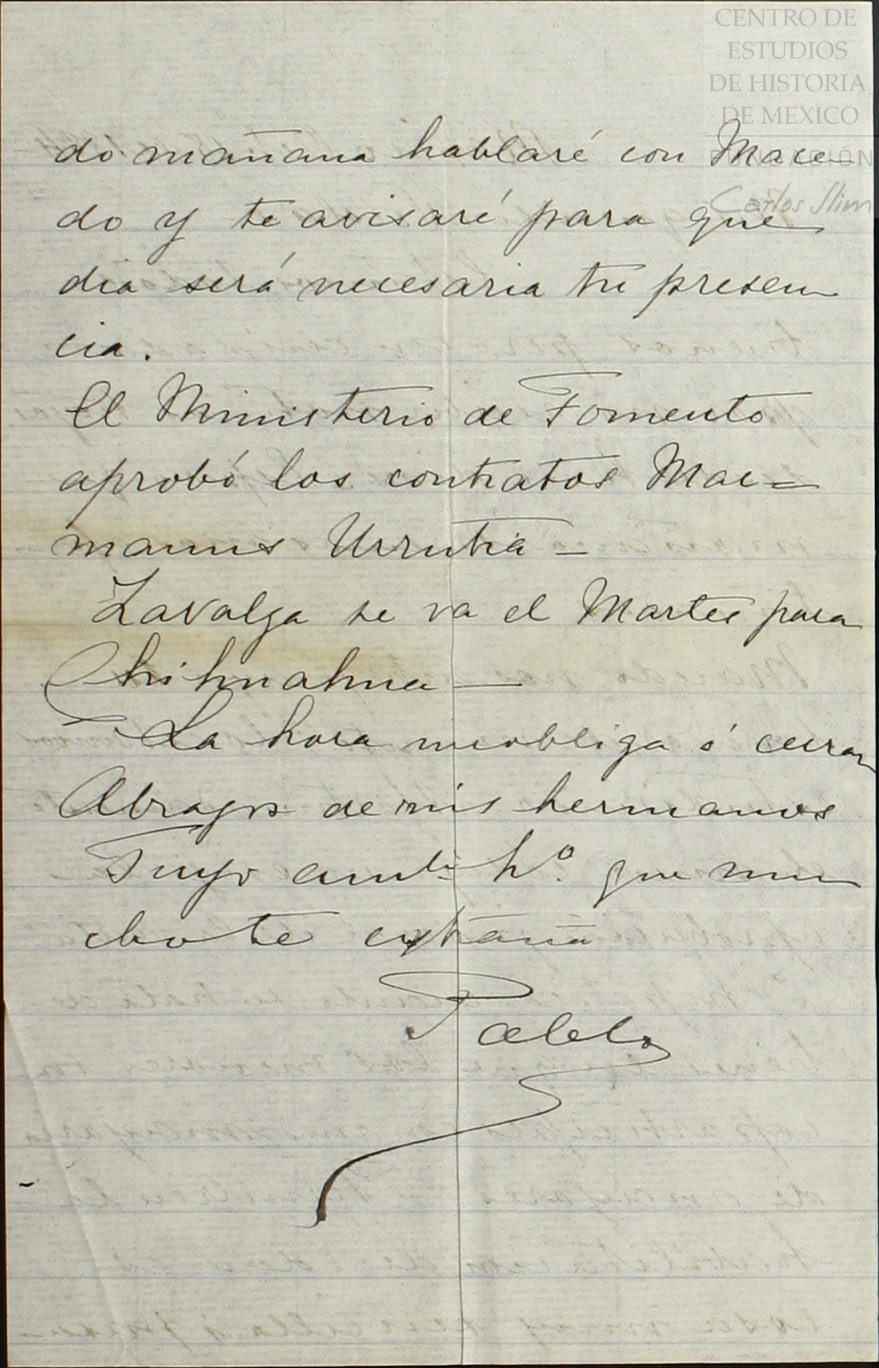 CENTRO DE
ESTUDIOS
DE HISTORIA
DE MEXICO
FUNDACIÓN
Carlos Slim
do mañana hablaré con Mace-
do y te avisaré para que
dia será necesaria tu presen
cia.
El Ministerio de Fomento
aprobó los contratos Mac=
manus Urrutia —
Zavalga se va el Martes para
Chihuahua —
La hora me obliga á cerrar
Abrazos de mis hermanos
Tuyo h.º que mu
cho te extraña
Pablo